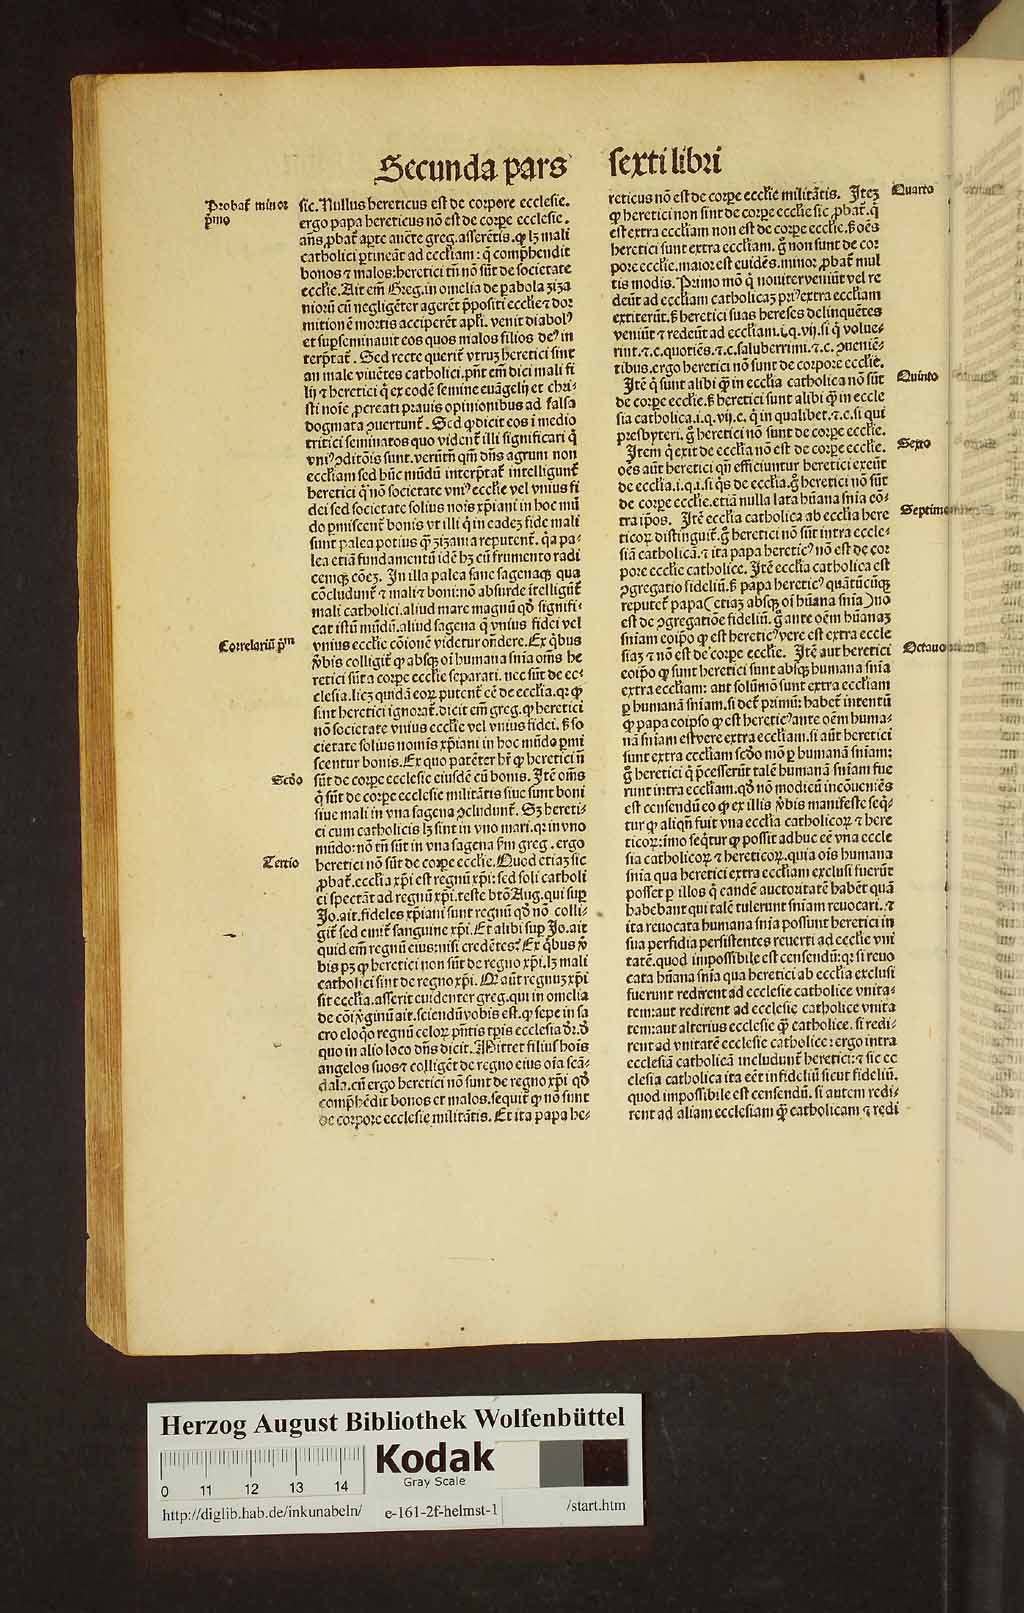 Secunda pars sexti libri
Probat̄ minor
p̄mo
sic. Nullus hereticus est de corpore ecclesie.
ergo papa hereticus nō est de corꝑe ecclesie.
an̄s ꝓbat̄ aꝑte auēte greg. asserētis. ꝙ lꝫ mali
catholici ꝑtineāt ad eccl̄iam: q̄ comp̄hendit
bonos ⁊ malos: heretici tn̄ nō sūt de societate
eccl̄ie. Ait em̄ Greg. in omelia de pabola zizā
niorū cū negligēter agerēt p̄positi eccl̄ie ⁊ dor
mitionē mortis acciperēt apl̄i. venit diabolꝰ
et suꝑseminauit eos quos malos filios deꝰ in
terp̄tat̄. Sed recte querit̄ vtrūꝫ heretici sint
an male viuētes catholici. pn̄t em̄ dici mali fi
lij ⁊ heretici q̄ ex eodē semine euāgelij et chri⸗
sti noīe ꝓcreati prauis opinionibus ad falsa
dogmata ꝯuertunt̄. Sed ꝙ dicit eos ī medio
tritici seminatos quo vident̄ illi significari q̄
vniꝰ ꝯditōis sunt. verūtn̄ qm̄ dn̄s agrum non
eccl̄iam sed hūc mūdū interp̄tat̄ intelligunt̄
heretici q̄ nō societate vniꝰ eccl̄ie vel vnius fi
dei sed societate solius nois xp̄iani in hoc mū
do ꝑmiscent̄ bonis vt illi q̄ in eadeꝫ fide mali
sunt palea potius q̄ꝫ zizania reputent̄. q̄a pa⸗
lea etiā fundamentū idē hꝫ cū frumento radi
cemqꝫ cōeꝫ. In illa palea sane sagenaqꝫ qua
cōcludunt̄ ⁊ mali ⁊ boni: nō absurde ītelligūt̄
mali catholici. aliud mare magnū qd̄ signifi⸗
cat istū mūdū. aliud sagena q̄ vnius fidei vel
Correlariū p̄m
vnius eccl̄ie cōionē videtur on̄dere. Ex q̄bus
v̄bis colligit̄ ꝙ absqꝫ oī humana sn̄ia om̄s he
retici sūt a corꝑe eccl̄ie separati. nec sūt de ec⸗
clesia. liceꝫ quidā eoꝝ putent̄ eē de eccl̄ia. qꝛ ꝙ
sint heretici ignorat̄. dicit em̄ greg. ꝙ heretici
nō societate vnius eccl̄ie vel vnius fidei. sꝫ so
cietate solius nomis xp̄iani in hoc mūdo ꝑmi
scentur bonis. Ex quo patēter hr̄ ꝙ heretici n̄
Scd̄o
sūt de corꝑe ecclesie eiusdē cū bonis. Itē om̄s
q̄ sūt de corꝑe ecclesie militātis siue sunt boni
siue mali in vna sagena ꝯcludunt̄. Sꝫ hereti⸗
ci cum catholicis lꝫ sint in vno mari. qꝛ in vno
mūdo: nō tn̄ sūt in vna sagena ẜm greg. ergo
Tertio
heretici nō sūt de corꝑe eccl̄ie. Quod etiaꝫ sic
ꝓbat̄. eccl̄ia xp̄i est regnū xp̄i: sed soli catholi
ci spectāt ad regnū xp̄i. teste btō Aug. qui suꝑ
Jo. ait. fideles xp̄iani sunt regnū qd̄ nō colli⸗
git̄ sed emit̄ sanguine xp̄i. Et alibi suꝑ Jo. ait
quid em̄ regnū eius: nisi credētes? Ex q̄bus v̄
bis pꝫ ꝙ heretici non sūt de regno xp̄i. lꝫ mali
catholici sint de regno xp̄i. Qꝛ aūt regnuꝫ xp̄i
sit eccl̄ia. asserit euidenter greg. qui in omelia
de cōi v̄ginū ait. sciendū vobis est. ꝙ sepe in sa
cro eloq̄o regnū celoꝝ pn̄tis tp̄is ecclesia dr̄: d̄
quo in alio loco dn̄s dicit. Mittet filius hoīs
angelos suos ⁊ colligēt de regno eius oīa scā⸗
dala. cū ergo heretici nō sunt de regno xp̄i qd̄
comp̄hēdit bonos et malos. sequit̄ ꝙ nō sunt
de corpore ecclesie militātis. Et ita papa he⸗
Quarto
reticus nō est de corꝑe eccl̄ie militātis. Iteꝫ
ꝙ heretici non sint de corꝑe eccl̄ie sic ꝓbat̄. q̄
est extra eccl̄iam non est de corꝑe eccl̄ie. sꝫ oēs
heretici sunt extra eccl̄iam. g̊ non sunt de cor
pore eccl̄ie. maior est euidēs. minor ꝓbat̄ mul
tis modis. Primo mō q̄ nouiter veniūt vel re
deūt ad eccl̄iam catholicaꝫ priꝰ extra eccl̄iam
extiterūt. sꝫ heretici suas hereses delinquētes
veniūt ⁊ redeūt ad eccl̄iam. i. q. vij. si q̄ volue⸗
rint. ⁊. c. quotiēs. ⁊. c. saluberrimū. ⁊. c. ꝯueniē⸗
tibus. ergo heretici nō sunt de corpore eccl̄ie.
Quinto
Itē q̄ sunt alibi q̄ꝫ in eccl̄ia catholica nō sūt
de corꝑe eccl̄ie. sꝫ heretici sunt alibi q̄ꝫ in eccle
sia catholica. i. q. vij. c. q̄ in qualibet. ⁊. c. si qui
presbyteri. g̊ heretici nō sunt de corꝑe eccl̄ie.
Sexto
Item q̄ exit de eccl̄ia nō est de corꝑe eccl̄ie.
oēs aūt heretici qn̄ efficiuntur heretici exeūt
de eccl̄ia. i. q. i. si q̄s de eccl̄ia. g̊ heretici nō sūt
de corꝑe eccl̄ie. etiā nulla lata hūana sn̄ia cō⸗
Septimo
tra ip̄os. Itē eccl̄ia catholica ab eccl̄ia here
ticoꝝ distinguit̄. g̊ heretici nō sūt intra eccle⸗
siā catholicā. ⁊ ita papa hereticꝰ nō est de cor
pore eccl̄ie catholice. Itē eccl̄ia catholica est
ꝯgregatio fideliū. sꝫ papa hereticꝰ quātūcūqꝫ
reputet̄ papa (etiaꝫ absqꝫ oī hūana sn̄ia) nō
est de ꝯgregatiōe fideliū. g̊ ante oēm hūanaꝫ
sn̄iam eoip̄o ꝙ est hereticꝰ vere est extra eccle
Octauo
siaꝫ ⁊ nō est de corꝑe eccl̄ie. Itē aut heretici
eoip̄o ꝙ sunt heretici sunt absqꝫ humana sn̄ia
extra eccl̄iam: aut solūmō sunt extra eccl̄iam
ꝑ humanā sn̄iam. si det̄ primū: habet̄ intentū
ꝙ papa eoipso ꝙ est hereticꝰ ante oēm huma⸗
nā sn̄iam est vere extra eccl̄iam. si aūt heretici
sunt extra eccl̄iam scd̄o mō ꝑ humanā sn̄iam:
g̊ heretici q̄ p̄cesserūt talē humanā sn̄iam fue
runt intra eccl̄iam. qd̄ nō modicū incōueniēs
est censendū eo ꝙ ex illis v̄bis manifeste seq̄⸗
tur ꝙ aliqn̄ fuit vna eccl̄ia catholicoꝝ ⁊ here
ticoꝝ: īmo seq̄tur ꝙ possit adhuc eē vna eccle
sia catholicoꝝ ⁊ hereticoꝝ. quia oīs humana
sn̄ia qua heretici extra eccl̄iam exclusi fuerūt
posset ꝑ illos q̄ eandē auctoritatē habēt quā
habebant qui talē tulerunt sn̄iam reuocari. ⁊
ita reuocata humana sn̄ia possunt heretici in
sua perfidia persistentes reuerti ad eccl̄ie vni
tatē. quod impossibile est censendū: qꝛ si reuo
cata hūana sn̄ia qua heretici ab eccl̄ia exclusi
fuerunt redirent ad ecclesie catholice vnita⸗
tem: aut redirent ad ecclesie catholice vnita
tem: aut alterius ecclesie q̄ꝫ catholice. si redi⸗
rent ad vnitatē ecclesie catholice: ergo intra
ecclesiā catholicā includunt̄ heretici: ⁊ sic ec
clesia catholica ita eēt infideliū sicut fideliū.
quod impossibile est censendū. si autem redi⸗
rent ad aliam ecclesiam q̄ꝫ catholicam ⁊ redi
Herzog August Bibliothek Wolfenbüttel
0 11 12 13 14
Kodak
Gray Scale
http://diglib.hab.de/inkunabeln/ e-161-2f-helmst-1 /start.htm